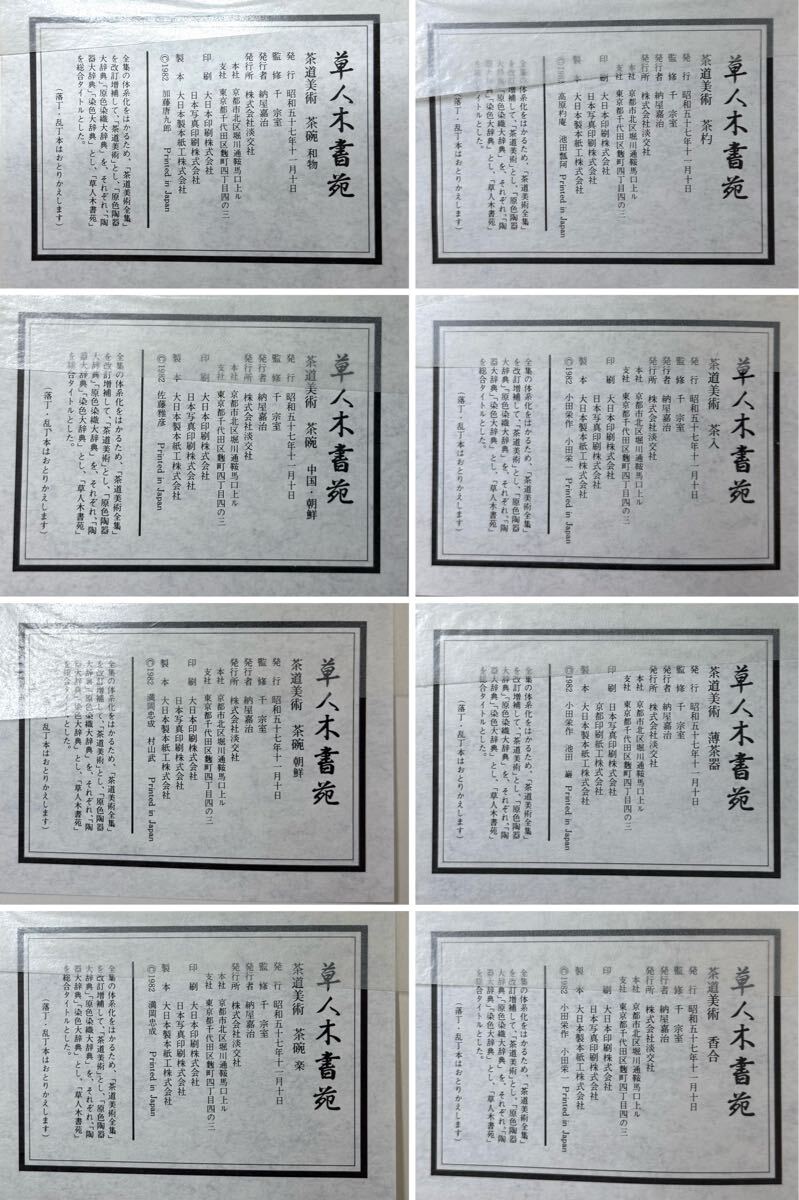 草人木書苑
茶道美術　茶碗 和物
発行　昭和五十七年十一月十日
監修　千　宗室
発行者　納屋嘉治
発行所　株式会社淡交社
本社　京都市北区堀川通鞍馬口上ル
支社　東京都千代田区麴町四丁目四の三
印刷　大日本印刷株式会社
日本写真印刷株式会社
製本　大日本製本紙工株式会社
©1982　加藤唐九郎　Printed in Japan
全集の体系化をはかるため、「茶道美術全集」
を改訂増補して、「茶道美術」とし、「原色陶器
大辞典」「原色染織大辞典」を、それぞれ、「陶
器大辞典」、「染色大辞典」とし、「草人木書苑」
を総合タイトルとした。
（落丁・乱丁本はおとりかえします）
草人木書苑
茶道美術　茶杓
発行　昭和五十七年十一月十日
監修　千　宗室
発行者　納屋嘉治
発行所　株式会社淡交社
本社　京都市北区堀川通鞍馬口上ル
支社　東京都千代田区麴町四丁目四の三
印刷　大日本印刷株式会社
日本写真印刷株式会社
製本　大日本製本紙工株式会社
高原杓庵　池田瓢阿　Printed in Japan
全集の体系化をはかるため、「茶道美術全集」
を改訂増補して、「茶道美術」とし、「原色陶器
大辞典」「原色染織大辞典」を、それぞれ、「陶
器大辞典」、「染色大辞典」とし、「草人木書苑」
を総合タイトルとした。
（落丁・乱丁本はおとりかえします）
草人木書苑
茶道美術　茶碗　中国・朝鮮
発行　昭和五十七年十一月十日
監修　千　宗室
発行者　納屋嘉治
発行所　株式会社淡交社
本社　京都市北区堀川通鞍馬口上ル
支社　東京都千代田区麴町四丁目四の三
印刷　大日本印刷株式会社
日本写真印刷株式会社
製本　大日本製本紙工株式会社
©1982　佐藤雅彦　Printed in Japan
全集の体系化をはかるため、「茶道美術全集」
を改訂増補して、「茶道美術」とし、「原色陶器
大辞典」「原色染織大辞典」を、それぞれ、「陶
器大辞典」、「染色大辞典」とし、「草人木書苑」
を総合タイトルとした。
（落丁・乱丁本はおとりかえします）
草人木書苑
茶道美術　茶入
発行　昭和五十七年十一月十日
監修　千　宗室
発行者　納屋嘉治
発行所　株式会社淡交社
本社　京都市北区堀川通鞍馬口上ル
支社　東京都千代田区麴町四丁目四の三
印刷　大日本印刷株式会社
日本写真印刷株式会社
製本　大日本製本紙工株式会社
©1982　小田栄作　小田栄一　Printed in Japan
全集の体系化をはかるため、「茶道美術全集」
を改訂増補して、「茶道美術」とし、「原色陶器
大辞典」「原色染織大辞典」を、それぞれ、「陶
器大辞典」、「染色大辞典」とし、「草人木書苑」
を総合タイトルとした。
（落丁・乱丁本はおとりかえします）
草人木書苑
茶道美術　茶碗 朝鮮
発行　昭和五十七年十一月十日
監修　千　宗室
発行者　納屋嘉治
発行所　株式会社淡交社
本社　京都市北区堀川通鞍馬口上ル
支社　東京都千代田区麴町四丁目四の三
印刷　大日本印刷株式会社
日本写真印刷株式会社
製本　大日本製本紙工株式会社
©1982　満岡忠成　村山武　Printed in Japan
全集の体系化をはかるため、「茶道美術全集」
を改訂増補して、「茶道美術」とし、「原色陶器
大辞典」「原色染織大辞典」を、それぞれ、「陶
器大辞典」、「染色大辞典」とし、「草人木書苑」
を総合タイトルとした。
乱丁本はおとりかえします）
草人木書苑
茶道美術　薄茶器
発行　昭和五十七年十一月十日
監修　千　宗室
発行者　納屋嘉治
発行所　株式会社淡交社
本社　京都市北区堀川通鞍馬口上ル
支社　東京都千代田区麴町四丁目四の三
印刷　大日本印刷株式会社
京都印刷紙工株式会社
製本　大日本製本紙工株式会社
©1982　小田栄作　池田　巖　Printed in Japan
全集の体系化をはかるため、「茶道美術全集」
を改訂増補して、「茶道美術」とし、「原色陶器
大辞典」「原色染織大辞典」を、それぞれ、「陶
器大辞典」、「染色大辞典」とし、「草人木書苑」
を総合タイトルとした。
（落丁・乱丁本はおとりかえします）
草人木書苑
茶道美術　茶碗 楽
発行　昭和五十七年十二月十日
監修　千　宗室
発行者　納屋嘉治
発行所　株式会社淡交社
本社　京都市北区堀川通鞍馬口上ル
支社　東京都千代田区麴町四丁目四の三
印刷　大日本印刷株式会社
日本写真印刷株式会社
製本　大日本製本紙工株式会社
©1982　満岡忠成　Printed in Japan
全集の体系化をはかるため、「茶道美術全集」
を改訂増補して、「茶道美術」とし、「原色陶器
大辞典」「原色染織大辞典」を、それぞれ、「陶
器大辞典」、「染色大辞典」とし、「草人木書苑」
を総合タイトルとした。
（落丁・乱丁本はおとりかえします）
草人木書苑
茶道美術　香合
発行　昭和五十七年十二月十日
監修　千　宗室
発行者　納屋嘉治
発行所　株式会社淡交社
本社　京都市北区堀川通鞍馬口上ル
支社　東京都千代田区麴町四丁目四の三
印刷　大日本印刷株式会社
日本写真印刷株式会社
製本　大日本製本紙工株式会社
©1982　小田栄作　小田栄一　Printed in Japan
全集の体系化をはかるため、「茶道美術全集」
を改訂増補して、「茶道美術」とし、「原色陶器
大辞典」「原色染織大辞典」を、それぞれ、「陶
器大辞典」、「染色大辞典」とし、「草人木書苑」
を総合タイトルとした。
（落丁・乱丁本はおとりかえします）